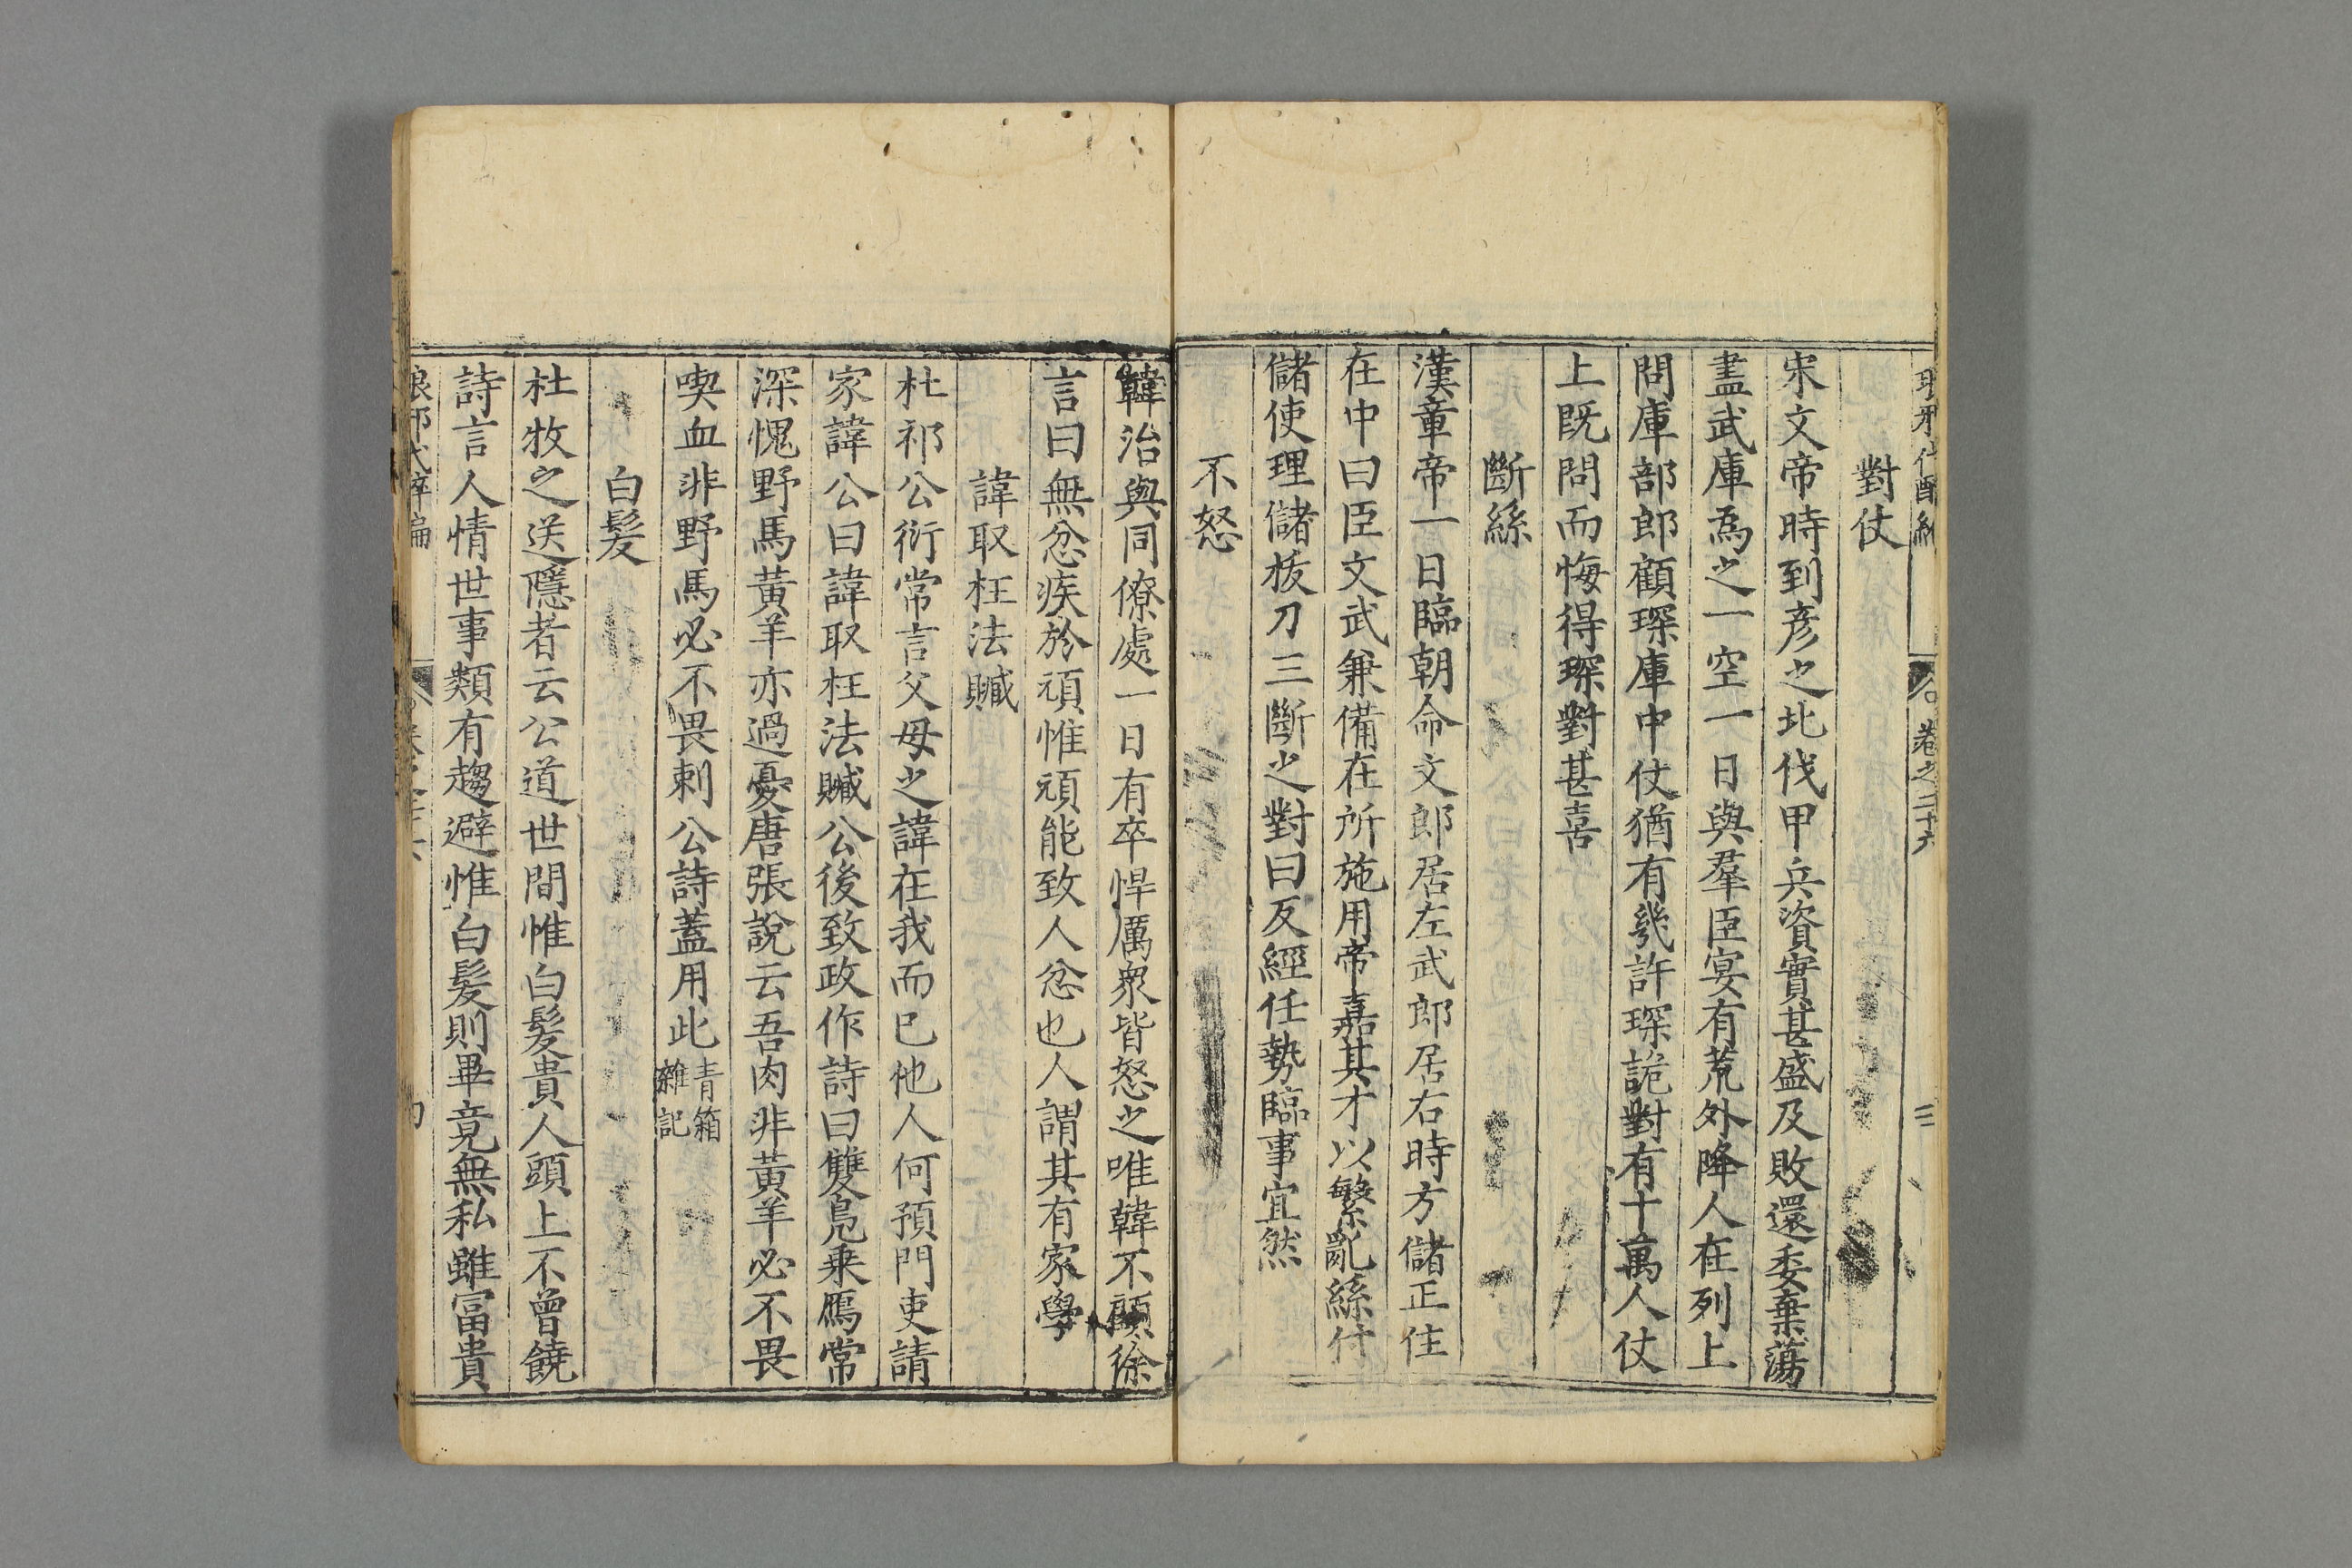 卷之二十六
三
對仗
宋文帝時到彦之北伐甲兵資實甚盛及敗還委棄蕩
盡武庫爲之一空一日與羣臣宴有荒外降人在列上
問庫部郎顧琛庫中仗猶有幾許琛詭對有十萬人仗
上既問而悔得琛對甚喜
斷絲
漢章帝一日臨朝命文郎居左武郎居右時方儲正住
在中曰臣文武兼備在所施用帝嘉其才以繁亂絲付
儲使理儲拔刀三斷之對曰反經任勢臨事宜然
不怒
韓治與同僚處一日有卒悍厲衆皆怒之唯韓不顧徐
言曰無忿疾於頑惟頑能致人忿也人謂其有家學
諱取枉法贓
杜祁公衍常言父母之諱在我而已他人何預門吏請
家諱公曰諱取枉法贓公後致政作詩曰雙鳧乗鴈常
深愧野馬黃羊亦過憂唐張說云吾肉非黃羊必不畏
喫血非野馬必不畏刺公詩蓋用此青箱
雜記
白髪
杜牧之送隱者云公道世間惟白髪貴人頭上不曾饒
詩言人情世事類有趨避惟白髪則畢竟無私雖富貴